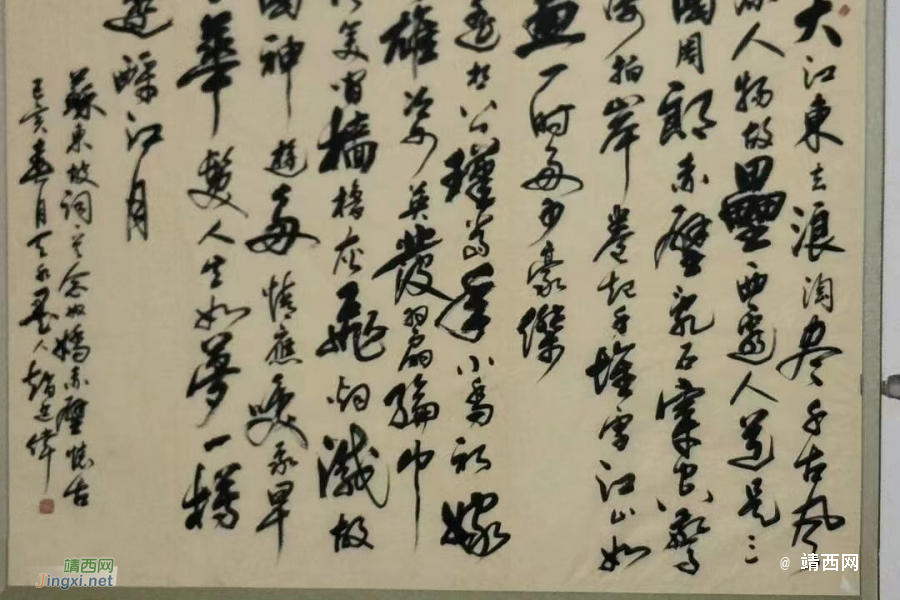 大江東去浪淘尽千古风
流人物故壘西邊人道是三
國周郎赤壁乱石穿空驚
濤拍岸卷起千堆雪江山如
畫一時多少豪傑
遙想公瑾當年小喬初嫁
雄姿英發羽扇綸巾
笑間檣櫓灰飛烟滅故
國神遊多情應笑我早
華髮人生如夢一樽
還酹江月
蘇東坡詞之念奴嬌赤壁懷古
己亥春月
靖西网
Jingxi.net
@ 靖西网